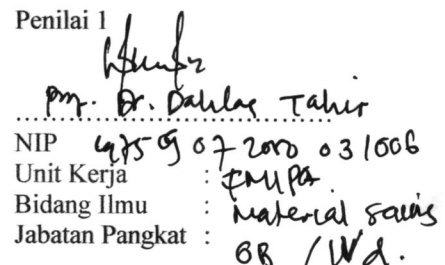 Penilai 1
Prof. Dr. Dahlang Tahir
NIP 19750907 2000 03 1006
Unit Kerja : FMIPA
Bidang Ilmu : Material Sains
Jabatan Pangkat : GB / IV d.